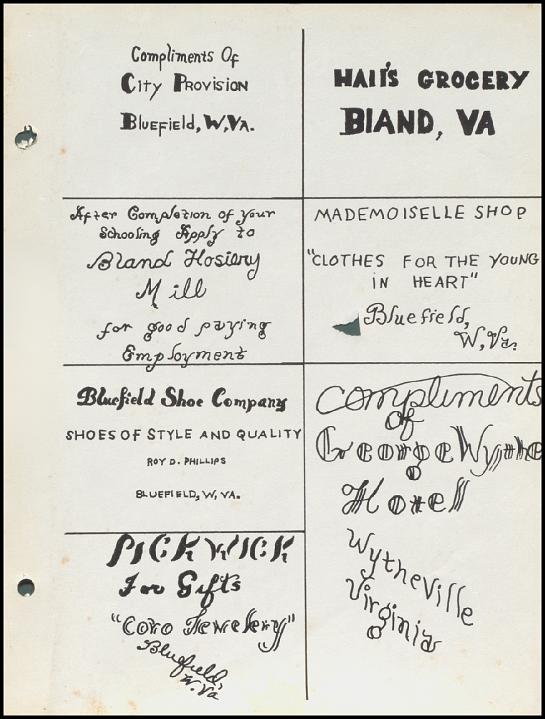 Compliments Of
City Provision
Bluefield, W.Va.
Hall's Grocery
Bland, VA
After Completion of your
Schooling Apply to
Bland Hosiery
Mill
for good paying
Employment
MADEMOISELLE SHOP
"CLOTHES FOR THE YOUNG
IN HEART"
Bluefield,
W,Va.
Bluefield Shoe Company
SHOES OF STYLE AND QUALITY
ROY D. PHILLIPS
BLUEFIELD, W, VA.
PICKWICK
For Gifts
"Coro Jewelery"
Bluefield,
W.Va
Compliments
of
George Wythe
Hotell
Wytheville
Virginia